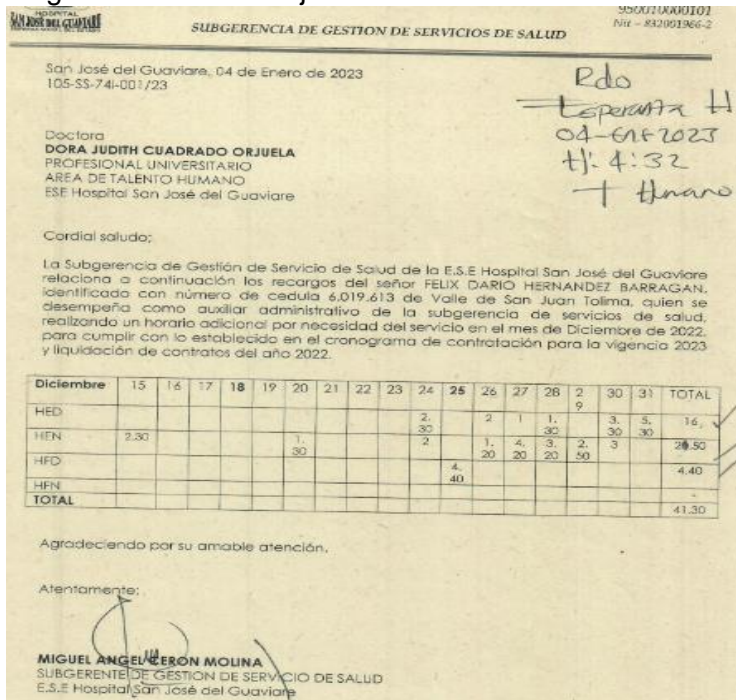 HOSPITAL
SAN JOSE DEL GUAVIARE
950010000101
Nit - 832001966-2
SUBGERENCIA DE GESTION DE SERVICIOS DE SALUD
San José del Guaviare, 04 de Enero de 2023
105-SS-74I-001/23
Rdo
Esperanza H
04-ENE2023
H: 4:32
T Humano
Doctora
DORA JUDITH CUADRADO ORJUELA
PROFESIONAL UNIVERSITARIO
AREA DE TALENTO HUMANO
ESE Hospital San José del Guaviare
Cordial saludo;
La Subgerencia de Gestión de Servicio de Salud de la E.S.E Hospital San José del Guaviare
relaciona a continuación los recargos del señor FELIX DARIO HERNANDEZ BARRAGAN,
identificado con número de cedula 6.019.613 de Valle de San Juan Tolima, quien se
desempeña como auxiliar administrativo de la subgerencia de servicios de salud,
realizando un horario adicional por necesidad del servicio en el mes de Diciembre de 2022,
para cumplir con lo establecido en el cronograma de contratación para la vigencia 2023
y liquidación de contratos del año 2022.
Diciembre 15 16 17 18 19 20 21 22 23 24 25 26 27 28 29 30 31 TOTAL
HED 2.30 2 1 1.30 3.30 5.30 16.
HEN 2.30 1.30 2 1.20 4.20 3.20 2.50 3 .50
HFD 4.40 4.40
HFN -
TOTAL 41.30
Agradeciendo por su amable atención,
Atentamente;
MIGUEL ANGEL CERON MOLINA
SUBGERENTE DE GESTION DE SERVICIO DE SALUD
E.S.E Hospital San José del Guaviare